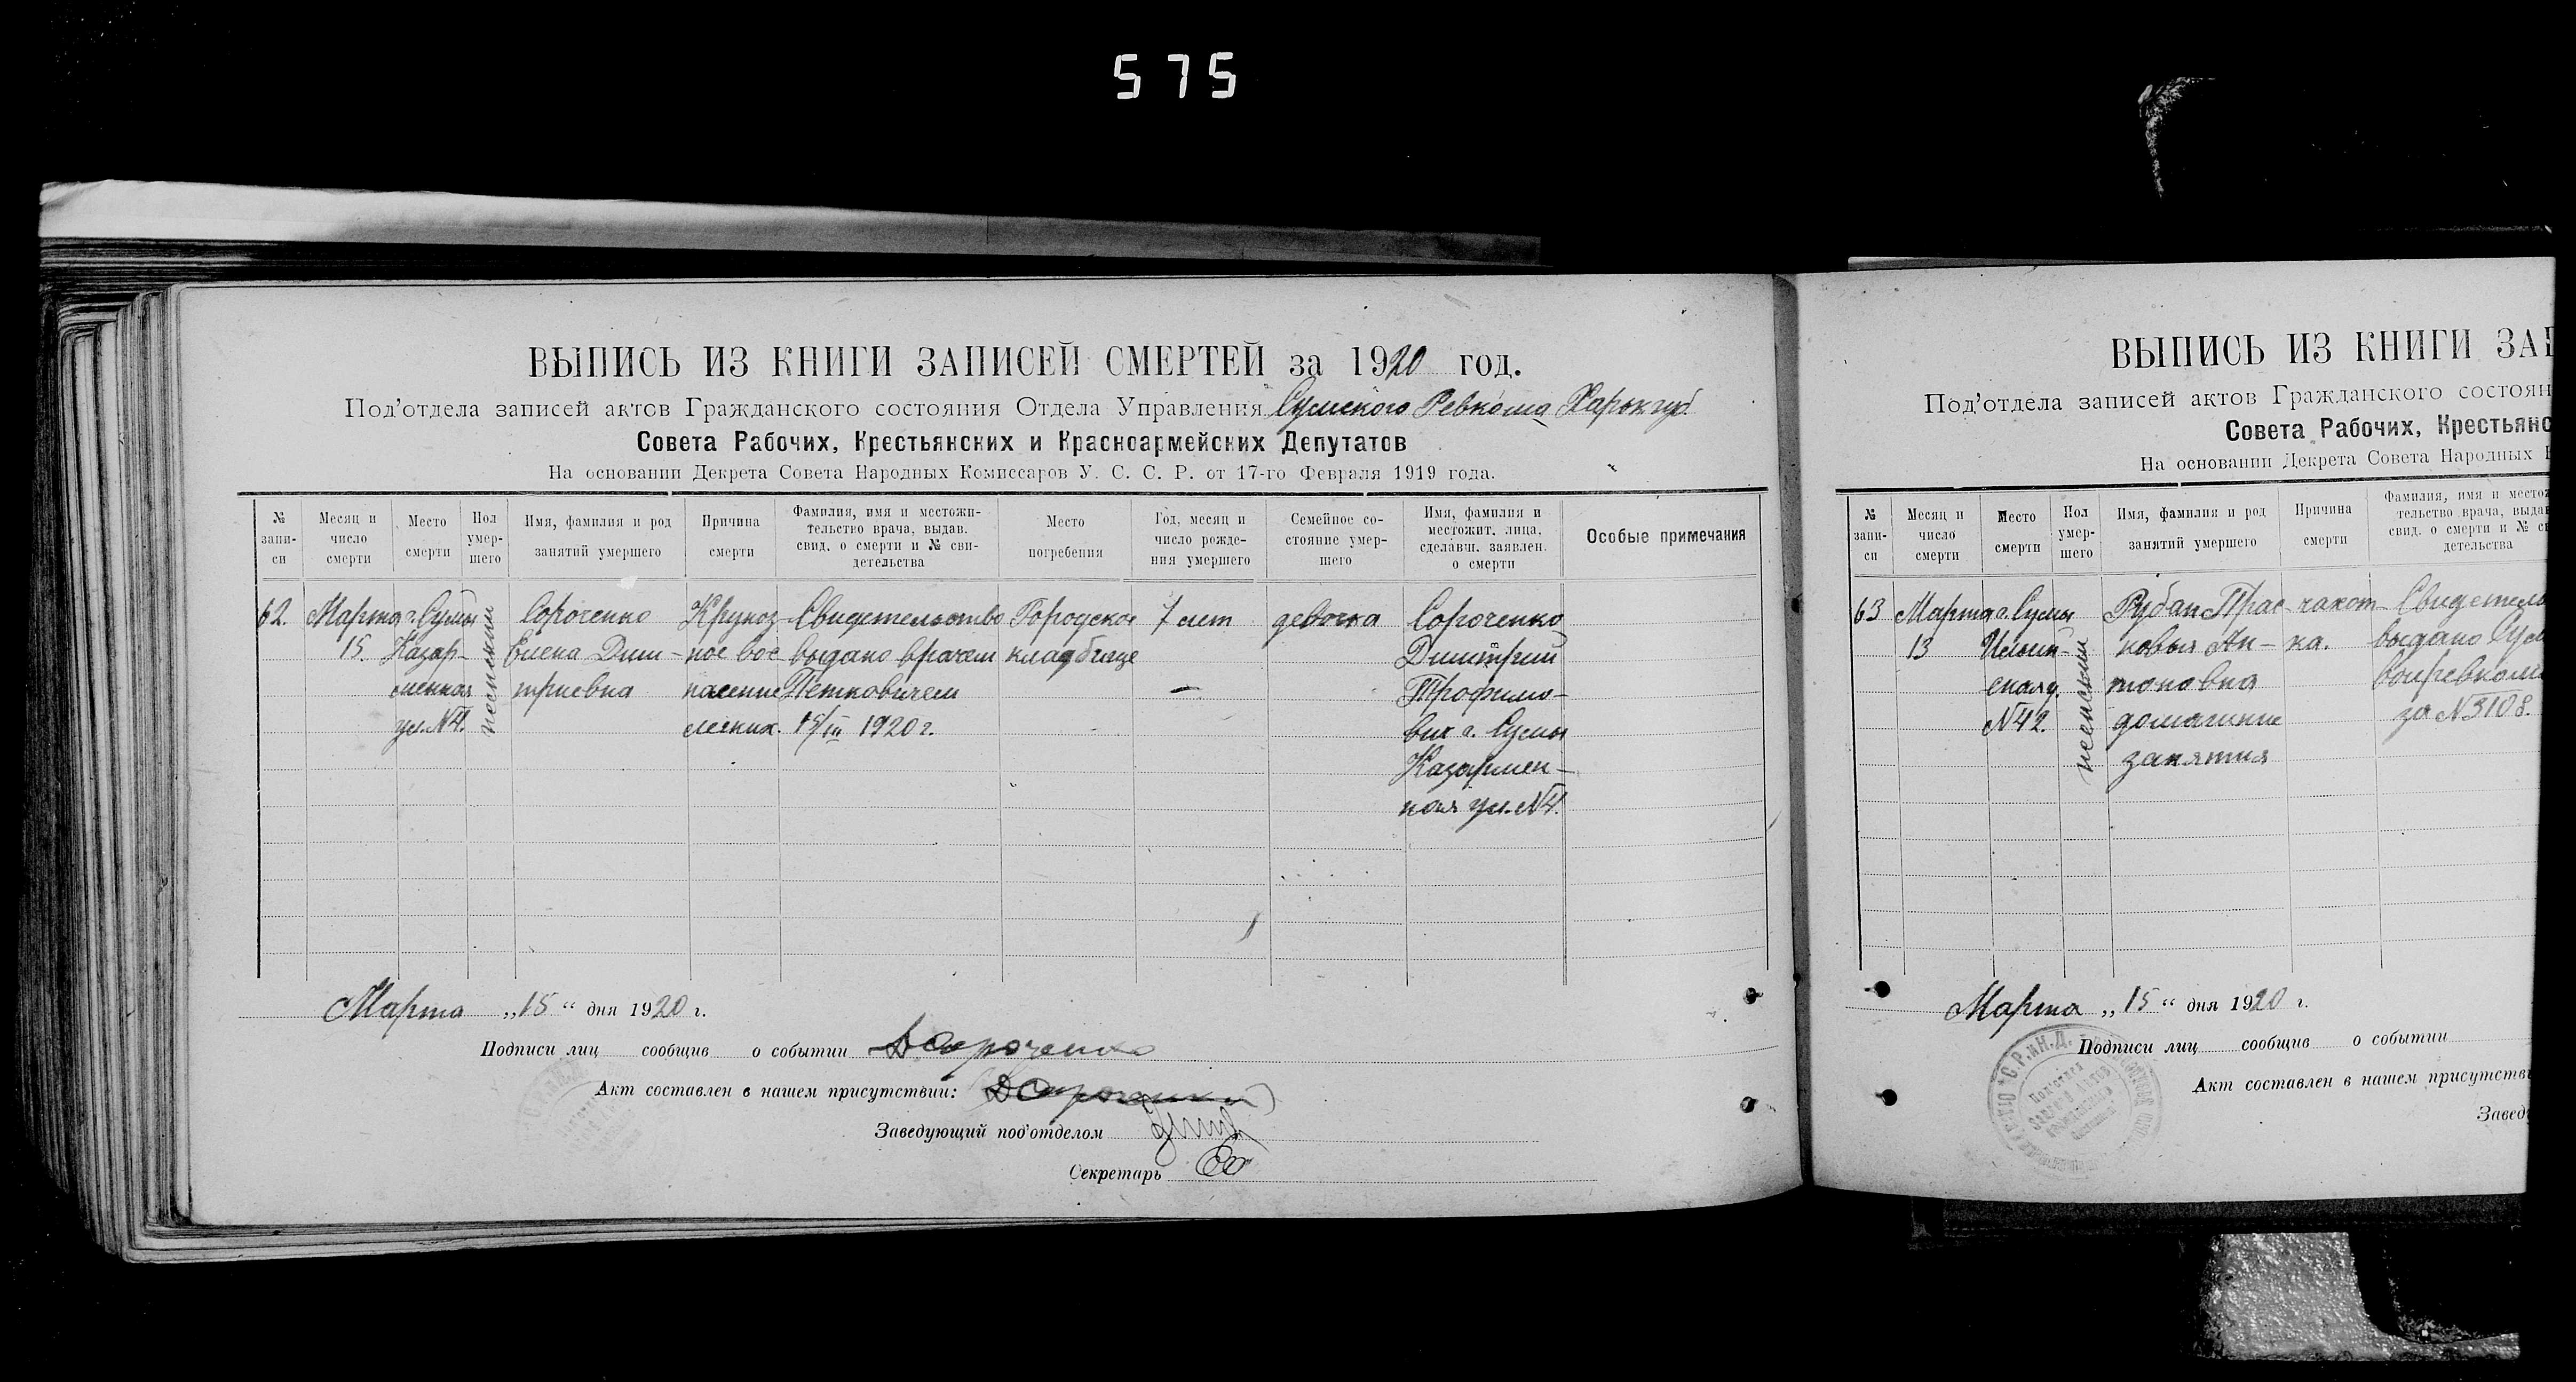 575
ВЫПИСЬ ИЗ КНИГИ ЗАПИСЕЙ СМЕРТЕЙ за 1920 год.
Под'отдела записей актов Гражданского состояния Отдела Управления Сумского Ревкома Харьк губ.
Совета Рабочих, Крестьянских и Красноармейских Депутатов
На основании Декрета Совета Народных Комиссаров У. С. С. Р. от 17-го Февраля 1919 года.
№ запи-си
Месяц и число смерти
Место смерти
Пол умер-шего
Имя, фамилия и род занятий умершего
Причина смерти
Фамилия, имя и местожи-тельство врача, выдав. свид. о смерти и № сви-детельства
Место погребения
Год, месяц и число рожде-ния умершего
Семейное со-стояние умер-шего
Имя, фамилия и местожит. лица, сделавш. заявлен. о смерти
Особые примечания
62. Марта г. Сумы Сороченко Крупоз Свидетельство Городское 7 лет девочка Сороченко
15. Казар- Елена Дми- ное вос выдано врачем кладбище Димитрий
менная триевна паление Петковичем — Трофимо-
ул. №4. легких. 15/III 1920 г. вич г. Сумы
женский
Казармен-
ная ул. №4.
Марта „15“ дня 1920 г.
Подписи лиц сообщив о событии ДСороченко
Акт составлен в нашем присутствии: ДСороченко
Заведующий под'отделом
Секретарь
ВЫПИСЬ ИЗ КНИГИ ЗАП
Под'отдела записей актов Гражданского состоян
Совета Рабочих, Крестьянс
На основании Декрета Совета Народных
№ запи-си
Месяц и число смерти
Место смерти
Пол умер-шего
Имя, фамилия и род занятий умершего
Причина смерти
Фамилия, имя и местож
тельство врача, выдав
свид. о смерти и № св
детельства
63 Марта г. Сумы Рубан Прас- чахот- Свидетель
13 Ильин- ковья Ан- ка. выдано Сум
ская у. тоновна
№42. домашние за №3108.
женский
занятия
Марта „15“ дня 1920 г.
Подписи лиц сообщив о событии
Акт составлен в нашем присутстви
Завед